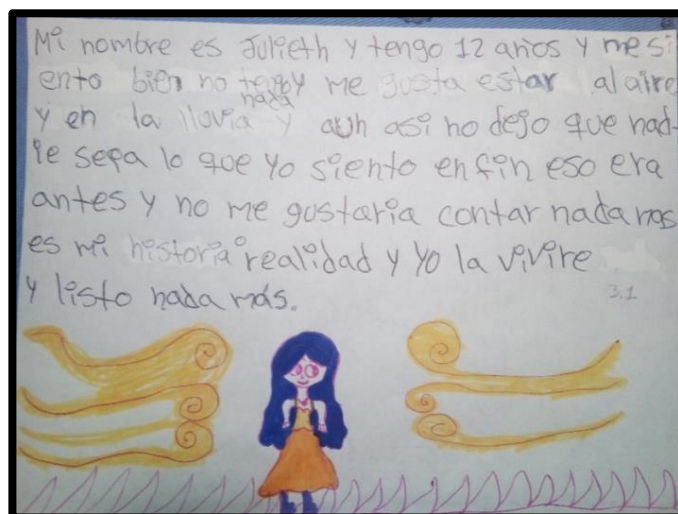 Mi nombre es Julieth y tengo 12 años y me si
ento bien no tengo nada y me gusta estar al aire
y en la lluvia y aun asi no dejo que nad-
ie sepa lo que yo siento en fin eso era
antes y no me gustaria contar nada mas
es mi historia o realidad y yo la vivire
y listo nada más.
3.1